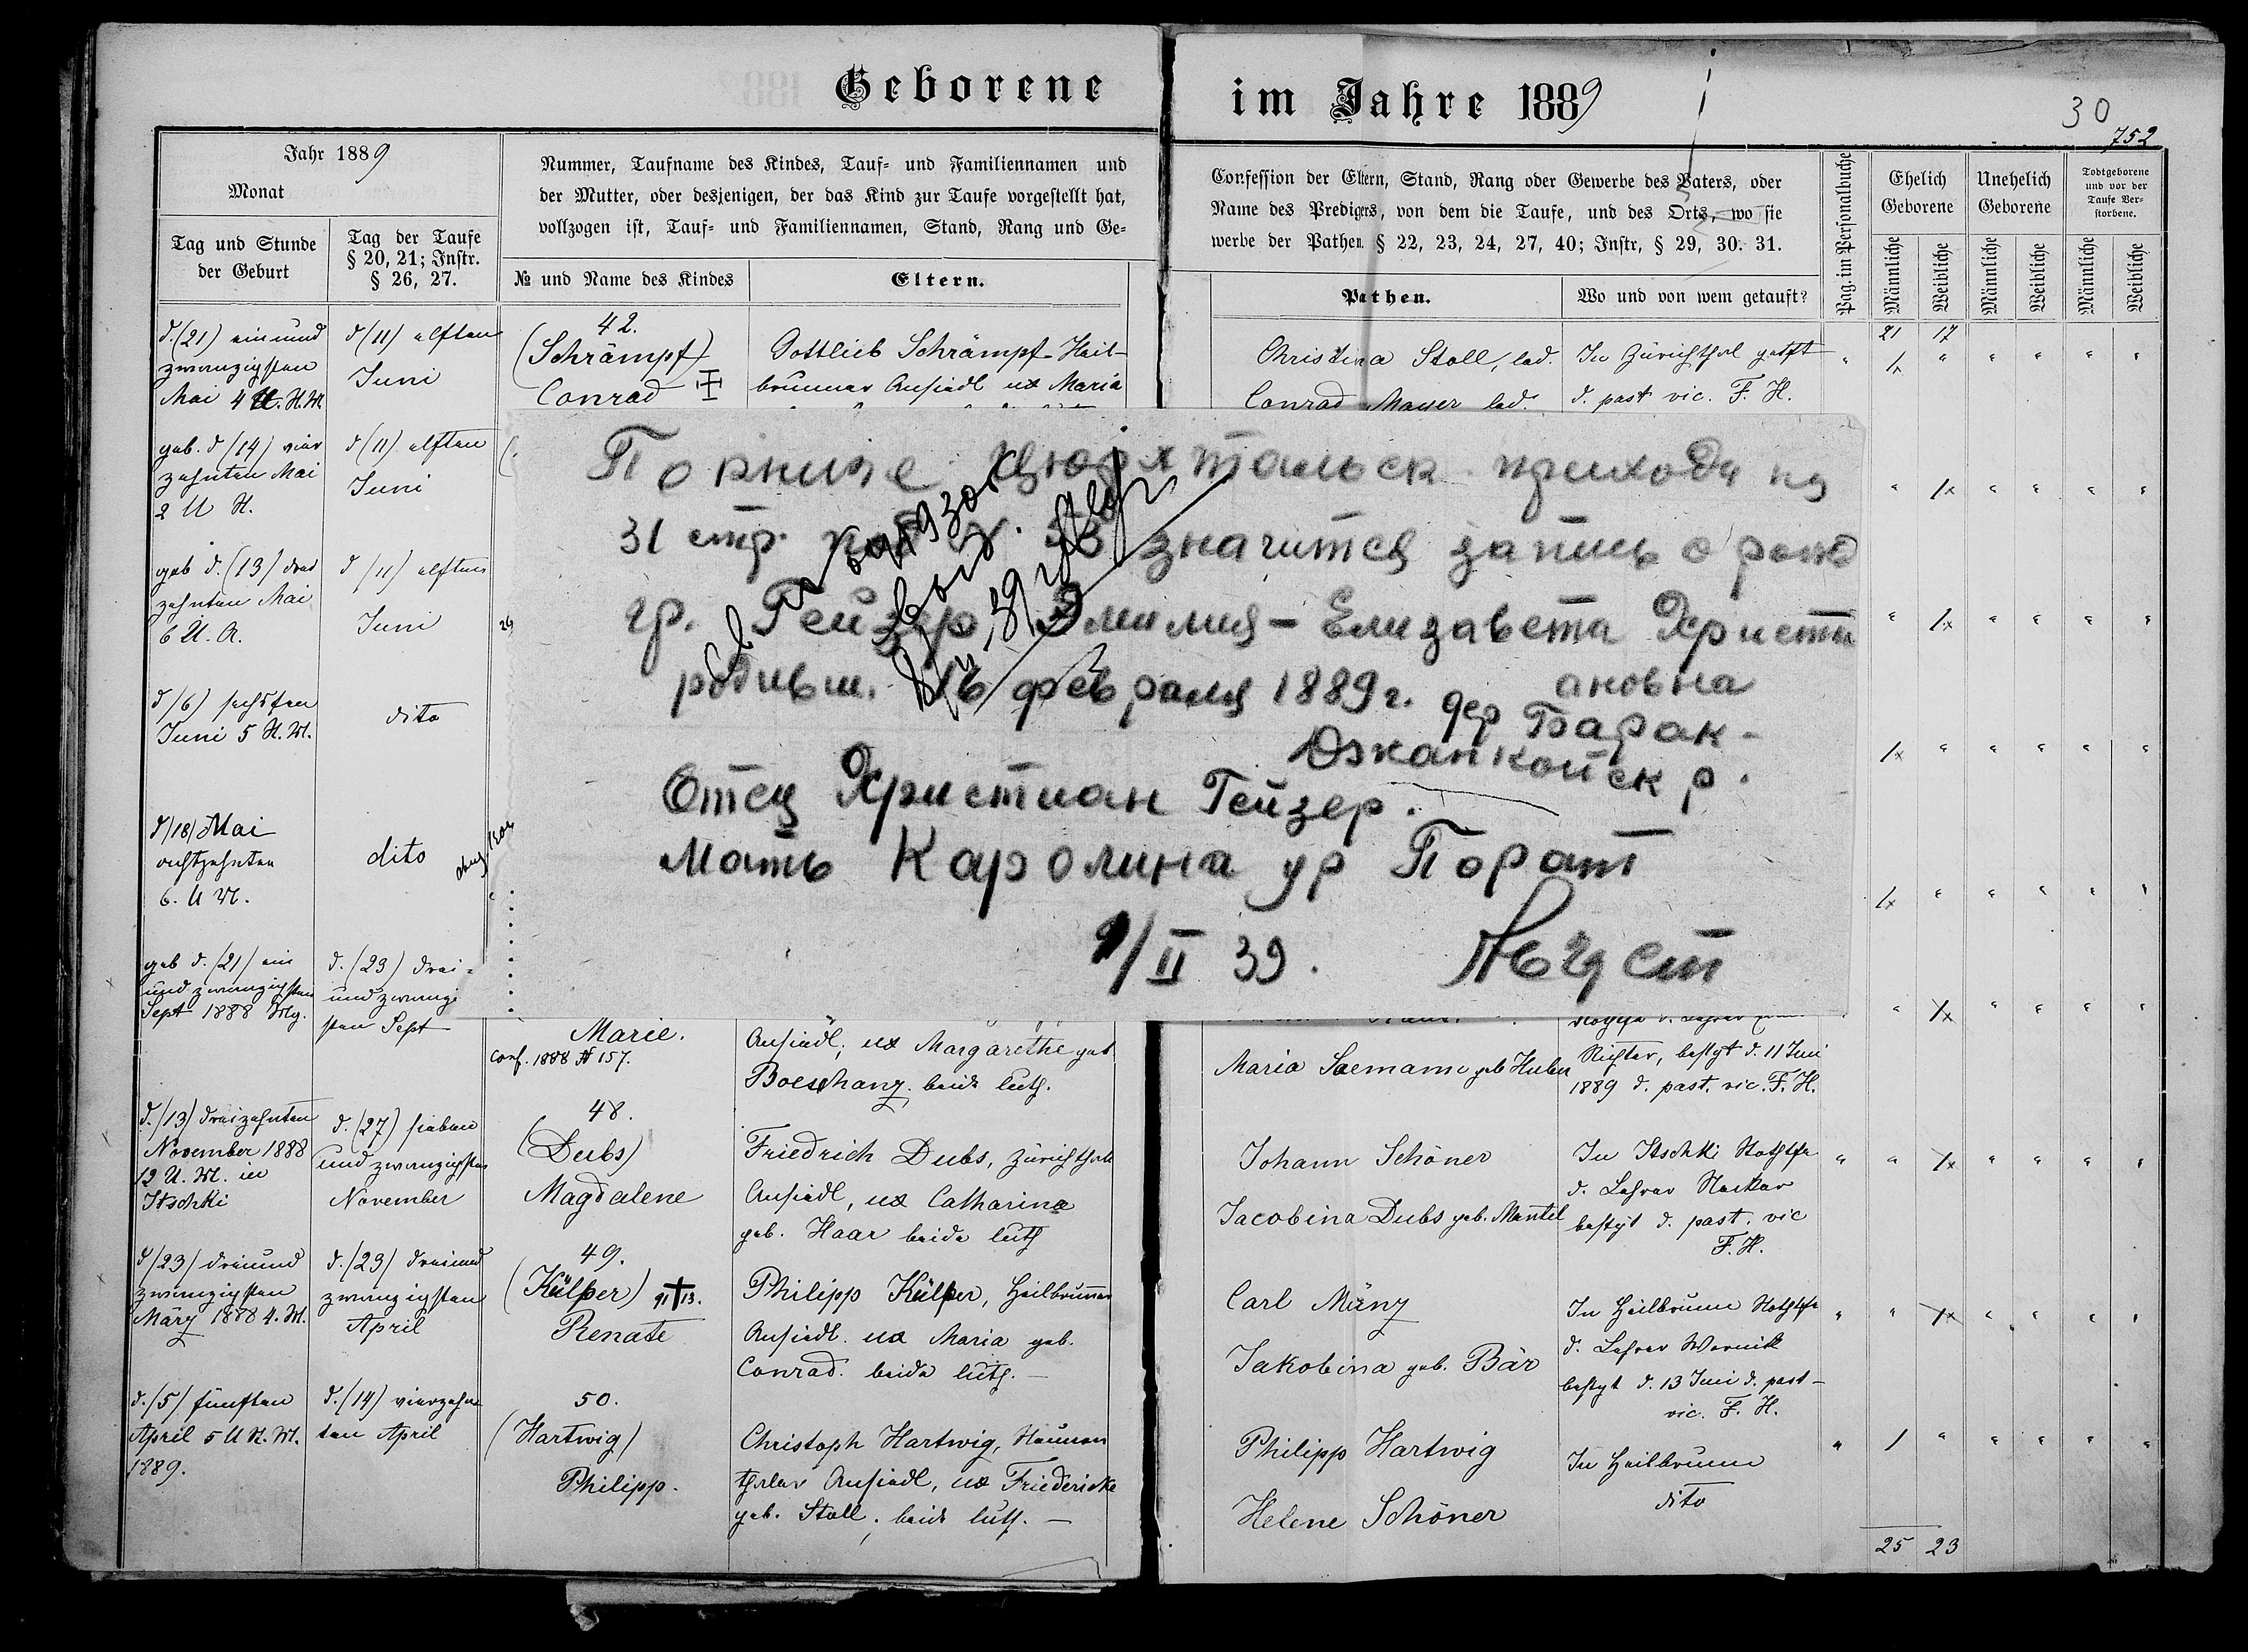 Geborene im Jahre 1889
30
752
Jahr 1889
Monat
Tag und Stunde
der Geburt
Tag der Taufe
§ 20, 21; Instr.
§ 26, 27.
Nummer, Taufname des Kindes, Tauf- und Familiennamen und
der Mutter, oder desjenigen, der das Kind zur Taufe vorgestellt hat,
vollzogen ist, Tauf- und Familiennamen, Stand, Rang und Ge-
№ und Name des Kindes
Eltern.
Confession der Eltern, Stand, Rang oder Gewerbe des Vaters, oder
Name des Predigers, von dem die Taufe, und des Orts, wo sie
werbe der Pathen. § 22, 23, 24, 27, 40; Instr, § 29, 30. 31.
Pathen.
Wo und von wem getauft?
Pag. im Personalbuche
Ehelich
Geborene
Unehelich
Geborene
Todtgeborene
und vor der
Taufe Ver-
storbene.
Männliche
Weibliche
Männliche
Weibliche
Männliche
Weibliche
d. (21) ein und
zwanzigsten
Mai 4 U. N.M.
d (11) elften
Juni
42.
(Schrämpf)
Conrad
Gottlieb Schrämpf Heil-
brunner Ansiedl ux Maria
Christina Stoll, led.
Conrad Mauer led.
In Zürichthal getft
d. past vic. F. H.
21 17
geb. d (14) vier
zehnten Mai
2 U N.
d (11) elften
Juni
geb d. (13) drei
zehnten Mai
6 U. A.
d (11) elften
Juni
d (6) sechsten
Juni 5 N. M.
dito
d (18) Mai
achtzehnten
6. U M.
dito
geb d. (21) ein
und zwanzigsten
Sept 1888 Mg.
d. (23) drei-
und zwanzig-
sten Sept
По книге Цюрихтальск прихода на
31 стр. значится запись о рожд
гр. Гейзер Эмилия - Елизавета Христи
ановна
родивш. 16 февраля 1889 г. дер Барак -
Джанкойск р.
Отец Христиан Гейзер.
Мать Каролина ур Порат
9/II 39. Август
Marie.
Conf. 1888 № 157.
Ansiedl; ux Margarethe geb
Boeschanz, beide luth.
Maria Saemann geb Huber
Richter, bestgt d. 11 Juni
1889 d. past. vic. F. H.
d. (13) dreizehnten
November 1888
12 U. M. in
Itschki
d. (27) sieben
und zwanzigsten
November
48.
(Dubs)
Magdalene
Friedrich Dubs, Zürichthal
Ansiedl, ux Catharina
geb. Haar beide luth
Johann Schöner
Jacobina Dubs geb. Mantel
In Itschki Nothtfe
d. Lehrer Neckar
bestgt d. past. vic
F. H.
d (23) dreiund
zwanzigsten
März 1888 4. M.
d. (23) dreiund
zwanzigsten
April
49.
(Külper) 91 † 13.
Renate
Philipp Külper, Heilbrunner
Ansiedl. ux Maria geb.
Conrad. beide luth. —
Carl Münz
Jakobina geb. Bär
In Heilbrunn Nothtfe
d. Lehrer Wernick
bestgt d. 13 Juni d. past-
vic. F. H.
d. (5) fünften
April 5 U N. M.
1889.
d. (14) vierzehn
ten April
50.
(Hartwig)
Philipp.
Christoph Hartwig,
thaler Ansiedl, ux Friedericke
geb. Stoll, beide luth. —
Philipp Hartwig
Helene Schöner
In Heilbrunn
dito
25 23